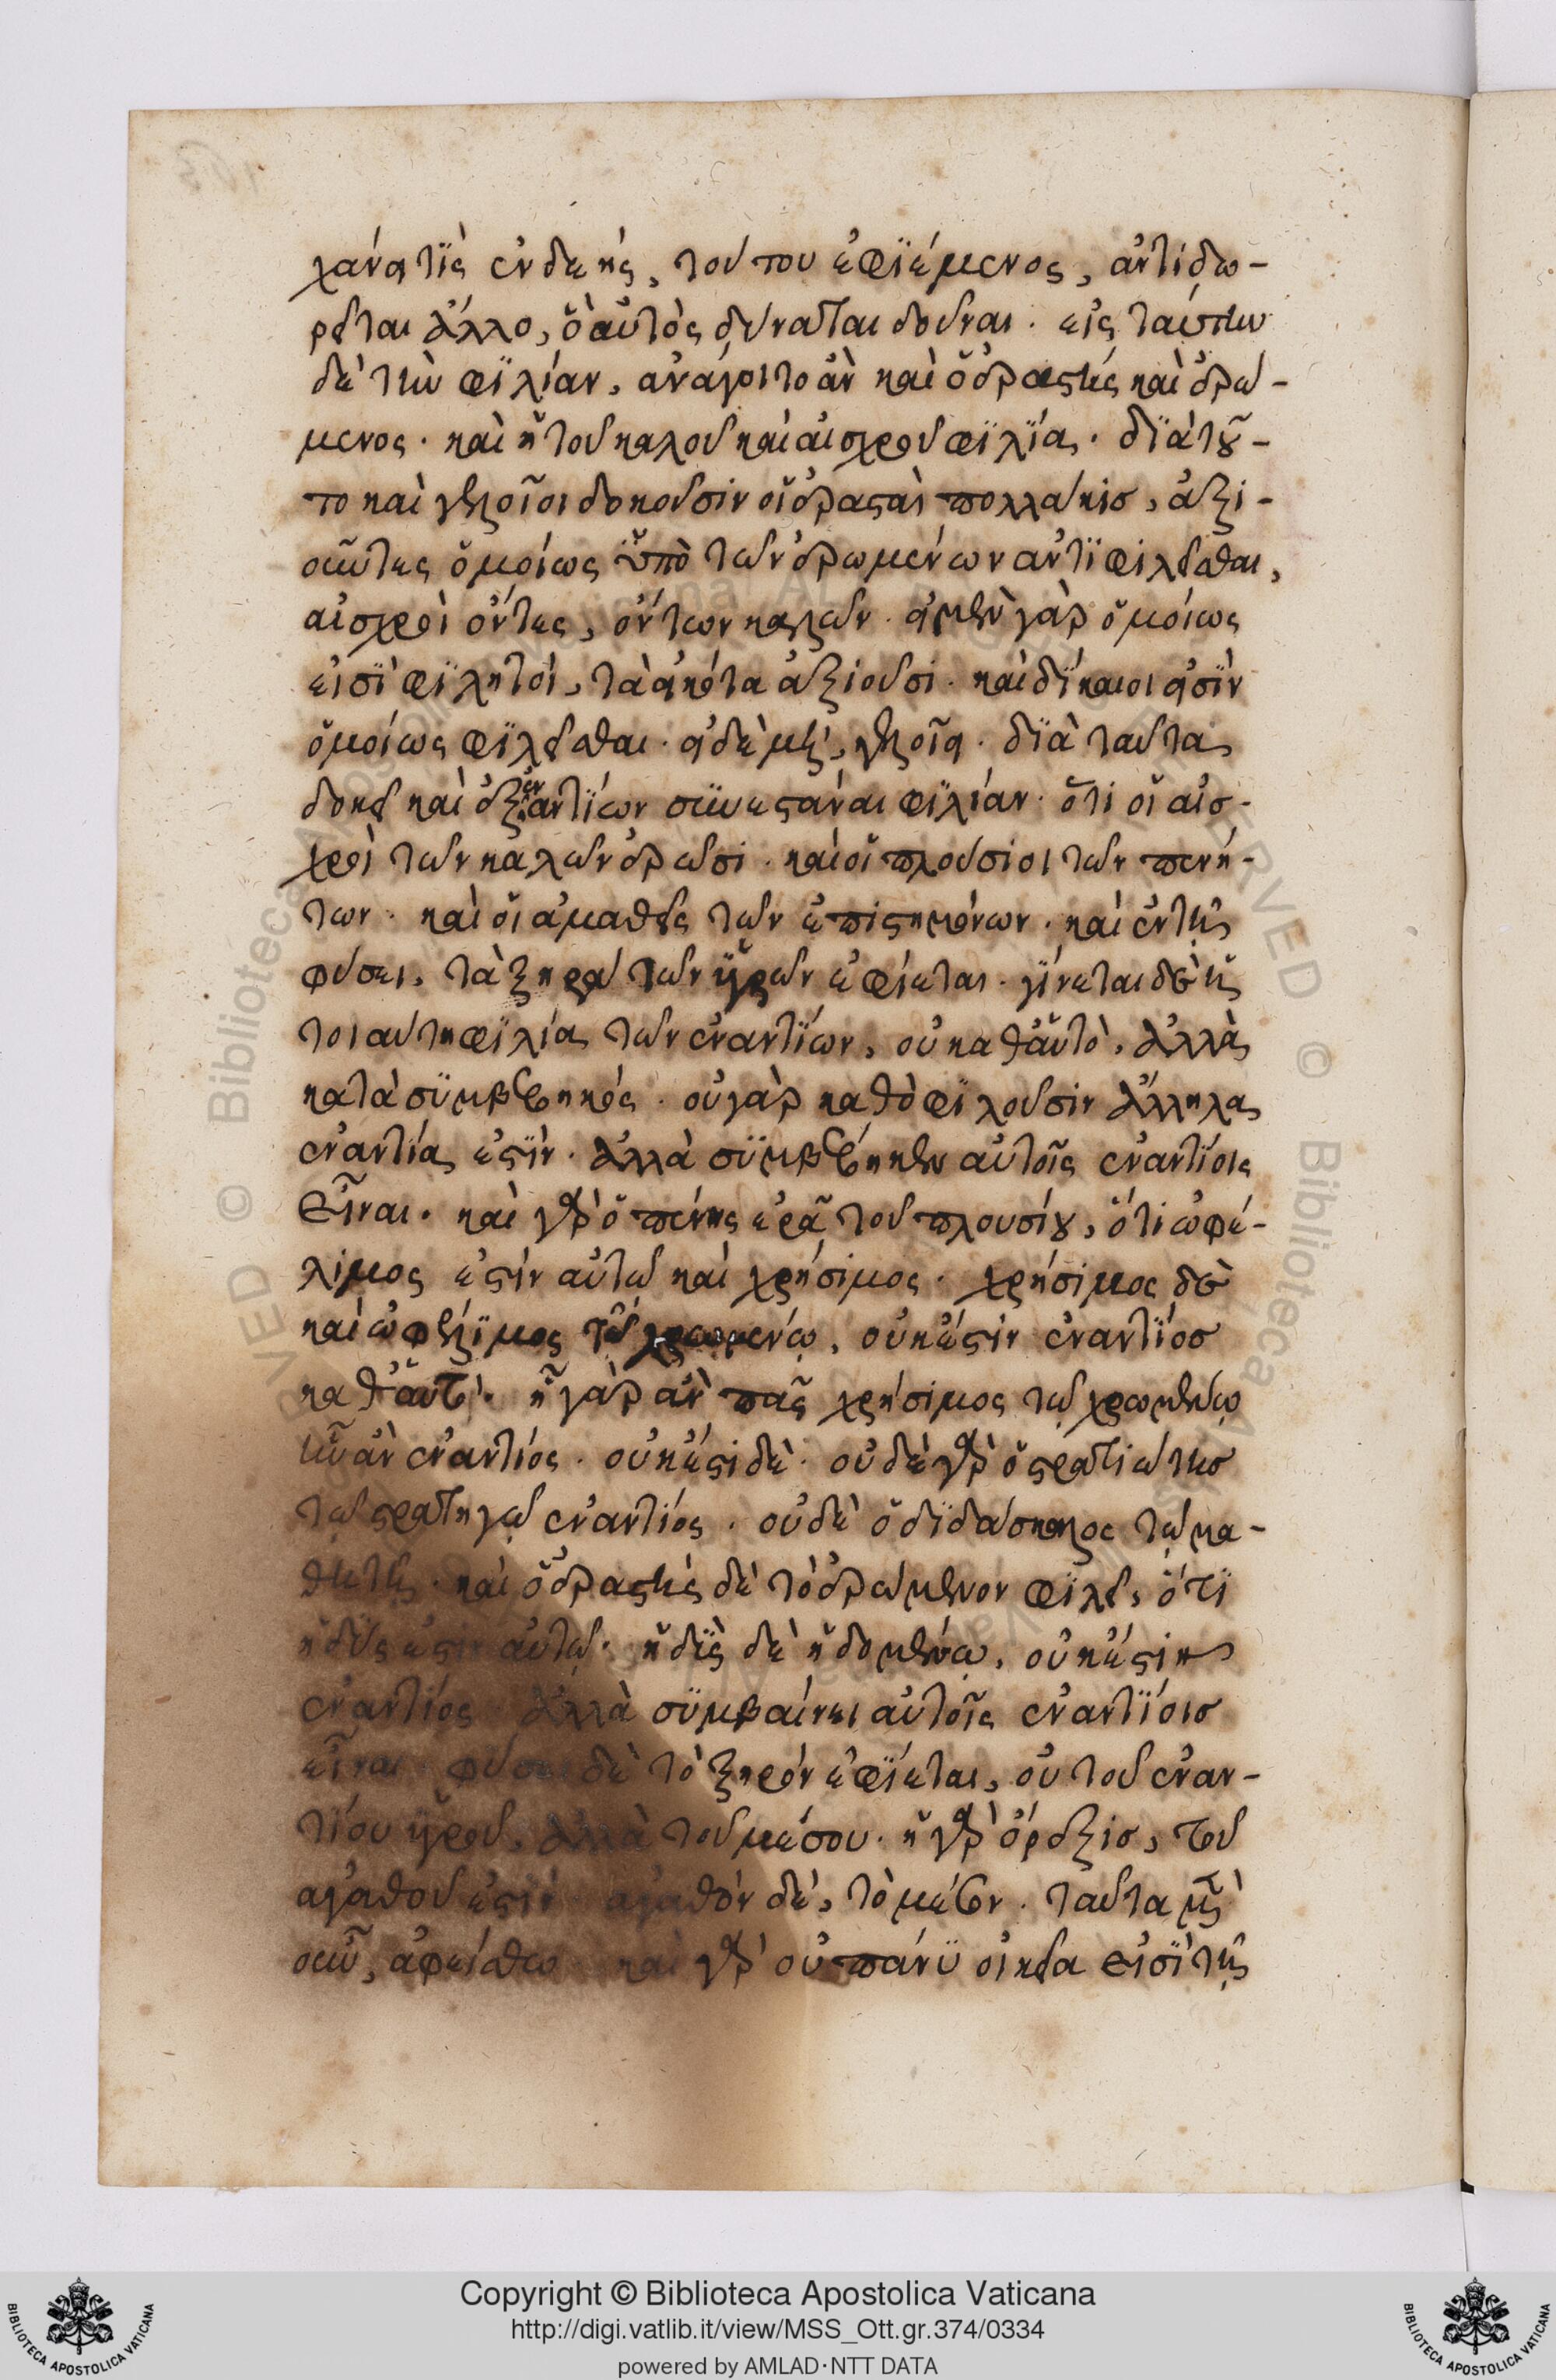 χάνει τἰς ἐνδεὴς, τούτου ἐφϊέμενος, ἀντίδω-
ρεῖται ἄλλο, ὃ αὐτὸς δύναται δοῦναι. εἰς ταύτην
δὲ τὴν φϊλίαν, ἀνάγοιτο ἂν καὶ ὁ ἐραστὴς καὶ ἐρώ-
μενος. καὶ ἡ τοῦ καλοῦ καὶ αἰσχροῦ φϊλϊα. δϊὰ τοῦ-
το καὶ γελοῖοι δοκοῦσιν οἱ ἐρασταὶ πολλάκισ, ἀξι-
οῦντες ὁμοίως ὑπὸ τῶν ἐρωμένων ἀντϊφιλεῖσθαι,
αἰσχροὶ ὄντες, ὄντων καλῶν. εἰ μὲν γὰρ ὁμοίως
εἰσὶ φϊλητοὶ, τὰ εἰκότα ἀξιοῦσι. καὶ δϊκαιοι εἰσὶν
ὁμοίως φϊλεῖσθαι. εἰ δὲ μὴ, γελοῖοι. δϊὰ ταῦτα
δοκεῖ καὶ ἐξ ἐναντϊων συνεστάναι φϊλίαν. ὅτι οἱ αἰσ-
χροὶ τῶν καλῶν ἐρῶσι. καὶ οἱ πλούσιοι τῶν πενή-
των. καὶ οἱ ἀμαθεῖς τῶν ἐπιστημόνων. καὶ ἐν τῇ
φύσει, τὰ ξηρὰ τῶν ὑγρῶν ἐφίεται. γίνεται δὲ ἡ
τοιαύτη φϊλία τῶν ἐναντϊων, οὐ καθ' αὑτὸ, ἀλλὰ
κατὰ συμβεβηκός. οὐ γὰρ καθὸ φϊλοῦσιν ἄλληλα
ἐναντία ἐστὶν. ἀλλὰ συμβέβηκεν αὐτοῖς ἐναντίοις
εἶναι. καὶ γὰρ ὁ πένης ἐρᾶ τοῦ πλουσίου, ὅτι ὠφέ-
λιμος ἐστὶν αὐτῷ καὶ χρήσιμος. χρήσιμος δὲ
καὶ ὠφελϊμος τῷ χρωμένῳ, οὐκ ἔστιν ἐναντϊοσ
καθ' αὑτὸ. ἦ γὰρ ἂν πᾶς χρήσιμος τῷ χρωμένῳ
ἦν ἂν ἐναντίος. οὐκ ἔστι δὲ. οὐδὲ γὰρ ὁ στρατιώτησ
τῷ στρατηγῷ ἐναντίος. οὐδὲ ὁ δϊδάσκαλος τῷ μα-
θητῇ. καὶ ὁ ἐραστὴς δὲ τὸ ἐρώμενον φϊλεῖ, ὅτϊ
ἡδὺς ἐστὶν αὐτῷ. ἡδὺς δὲ ἡδομένῳ, οὐκ ἔστιν
ἐναντίος. ἀλλὰ συμβαίνει αὐτοῖς ἐναντϊοισ
εἶναι. φύσει δὲ τὸ ξηρὸν ἐφϊεται, οὐ τοῦ ἐναν-
τίου ὑγροῦ, ἀλλὰ τοῦ μέσου. ἡ γὰρ ὄρεξισ, τοῦ
ἀγαθοῦ ἐστὶν. ἀγαθὸν δὲ, τὸ μέσον. ταῦτα μὲν
οὖν, ἀφείσθω. καὶ γὰρ οὐ πάνϋ οἰκεῖα εἰσὶ τῇ
Copyright © Biblioteca Apostolica Vaticana
http://digi.vatlib.it/view/MSS_Ott.gr.374/0334
powered by AMLAD·NTT DATA
BIBLIOTECA APOSTOLICA VATICANA
BIBLIOTECA APOSTOLICA VATICANA